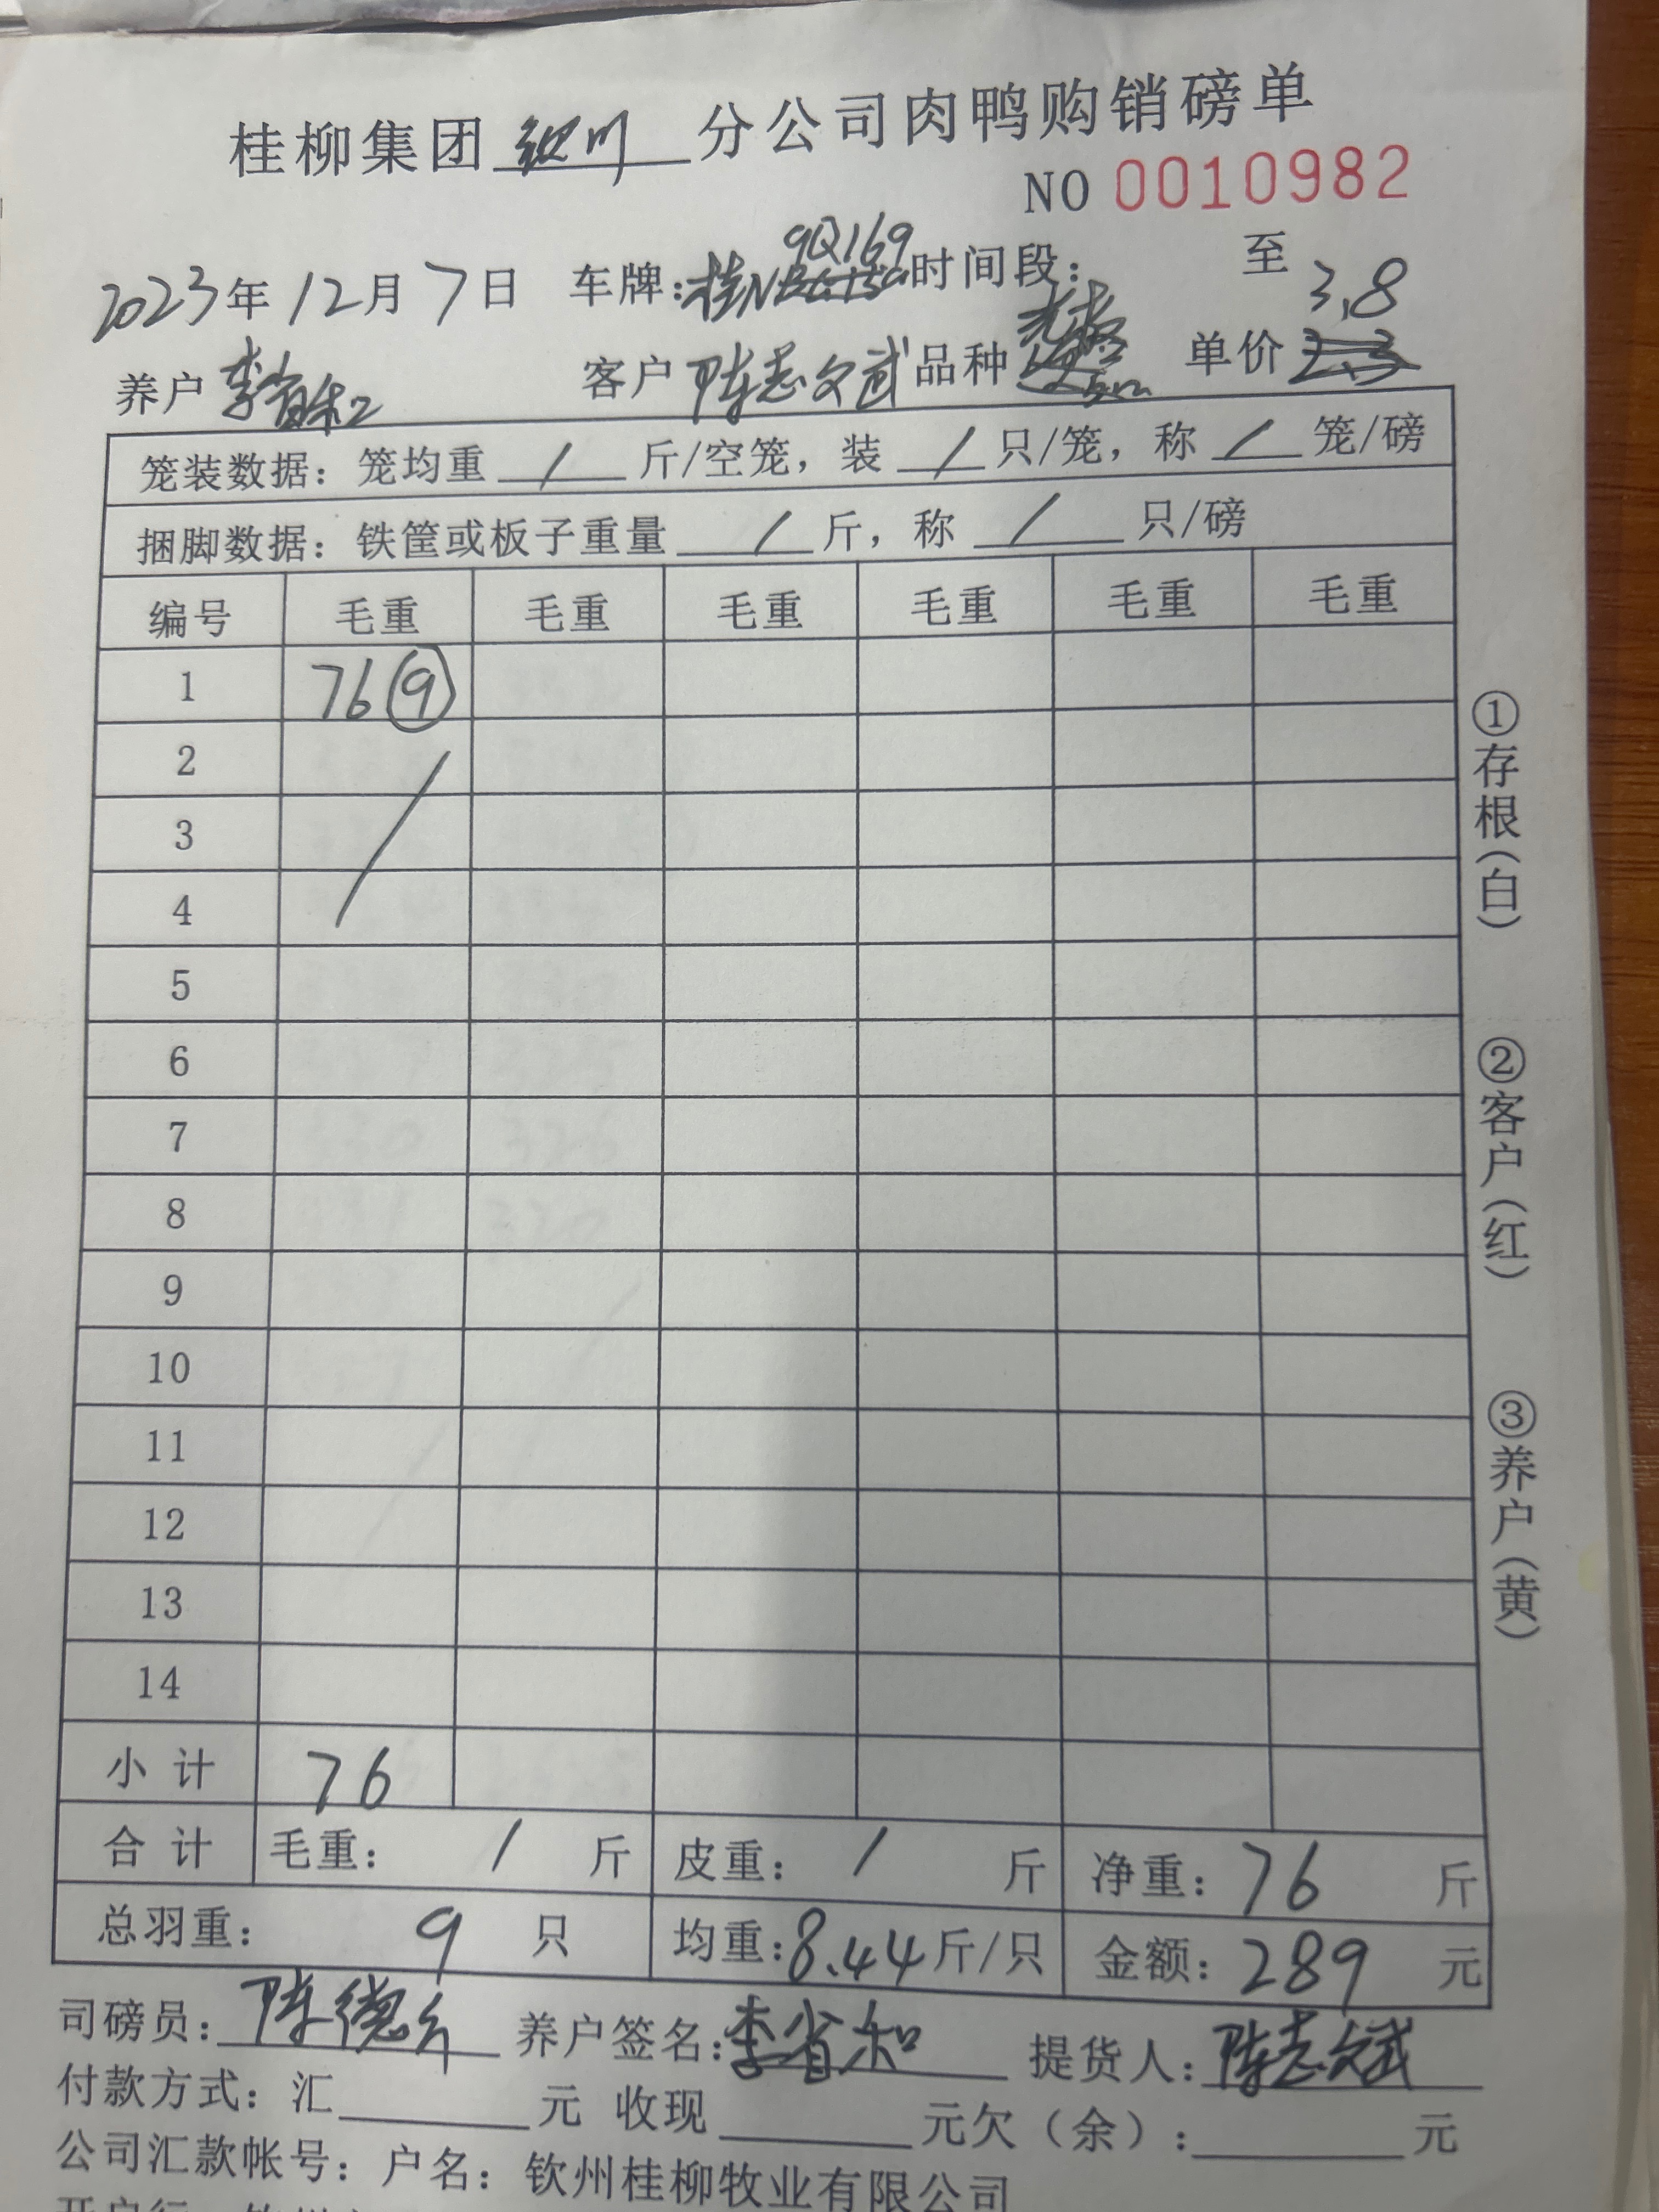 桂柳集团钦州分公司肉鸭购销磅单
NO 0010982
9Q169
2023年12月7日 车牌:桂N 时间段: 至
3.8
养户 李省和 客户 陈志斌 品种 单价
笼装数据: 笼均重 / 斤/空笼, 装 / 只/笼, 称 / 笼/磅
捆脚数据: 铁筐或板子重量 / 斤, 称 / 只/磅
编号 毛重 毛重 毛重 毛重 毛重 毛重
1 76⑨
2
3
4
5
6
7
8
9
10
11
12
13
14
小计 76
合计 毛重: / 斤 皮重: / 斤 净重: 76 斤
总羽重: 9 只 均重: 8.44 斤/只 金额: 289 元
司磅员: 陈德 养户签名: 李省和 提货人: 陈志斌
付款方式: 汇 元 收现 元欠(余): 元
公司汇款帐号: 户名: 钦州桂柳牧业有限公司
①存根(白)
②客户(红)
③养户(黄)